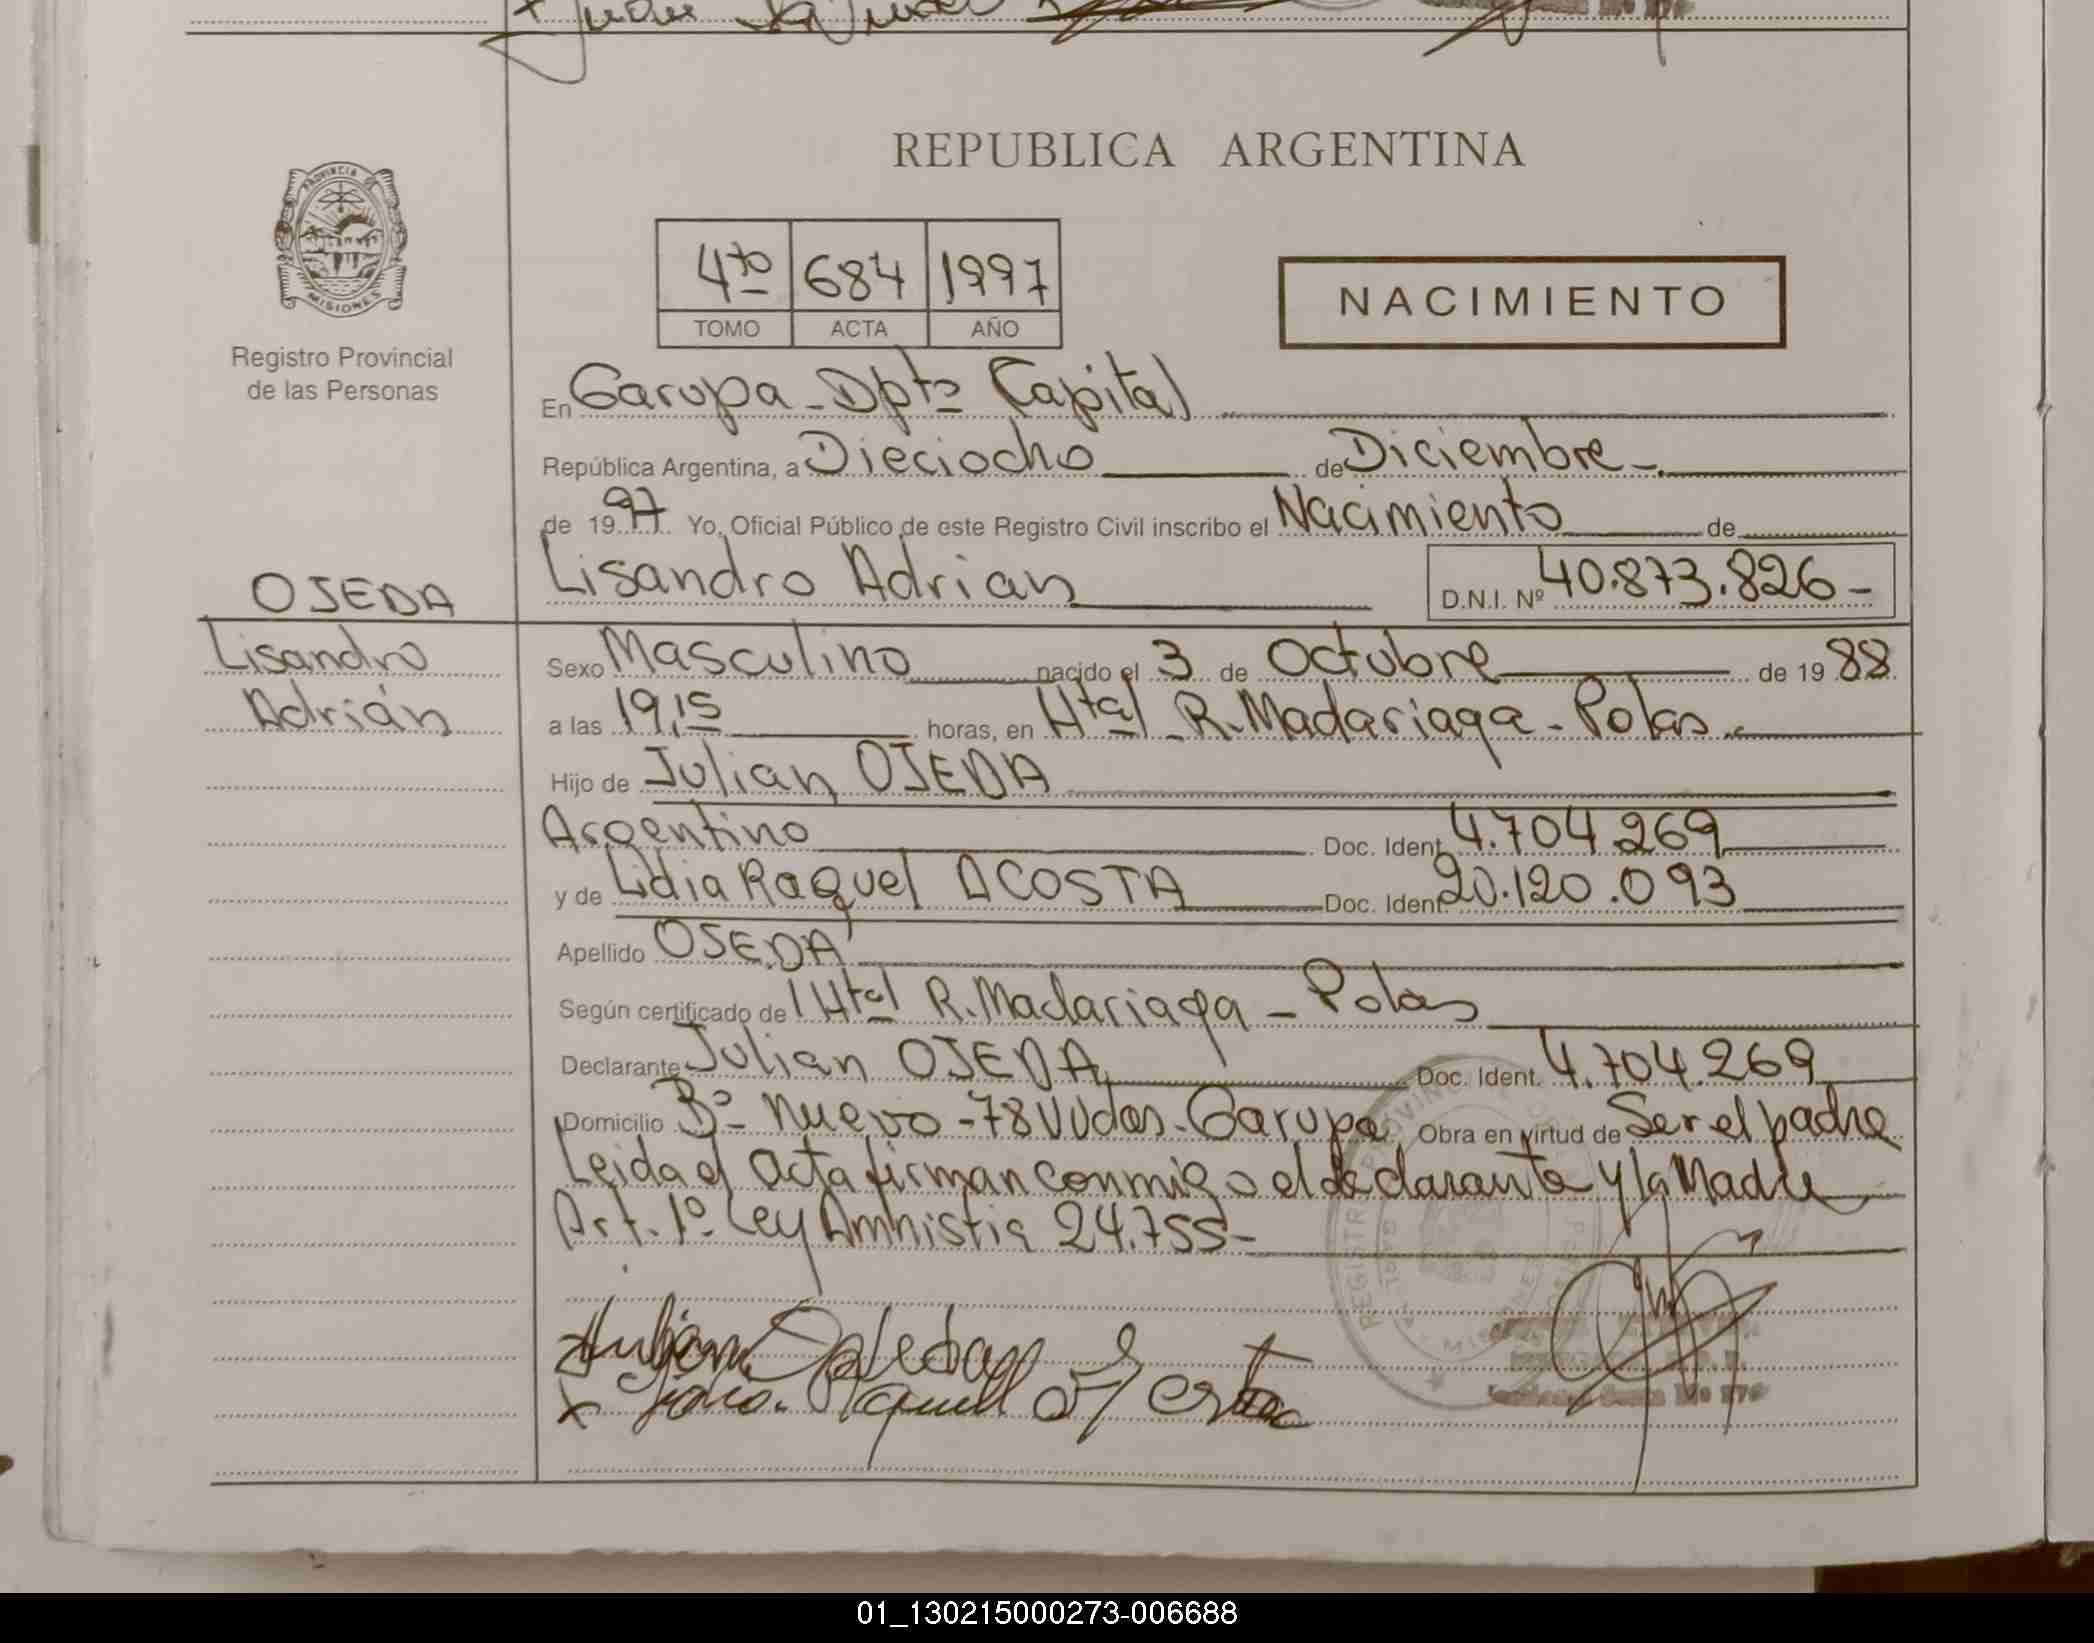 REPUBLICA ARGENTINA
PROVINCIA DE
MISIONES
Registro Provincial
de las Personas
4to 684 1997
TOMO ACTA AÑO
NACIMIENTO
En Garupa - Dpto Capital
República Argentina, a Dieciocho de Diciembre -
de 1997 Yo, Oficial Público de este Registro Civil inscribo el Nacimiento de
Lisandro Adrian D.N.I. Nº 40.873.826 -
OJEDA
Lisandro
Adrián
Sexo Masculino nacido el 3 de Octubre de 1988
a las 19,15 horas, en Htal R. Madariaga - Pdas
Hijo de Julian OJEDA
Argentino Doc. Ident. 4.704.269
y de Lidia Raquel ACOSTA Doc. Ident. 20.120.093
Apellido OJEDA
Según certificado del Htal R. Madariaga - Pdas
Declarante Julian OJEDA Doc. Ident. 4.704.269
Domicilio Bº Nuevo - 78 Vvdas - Garupa Obra en virtud de Ser el padre
Leida el acta firman conmigo el declarante y la Madre
Art. 1º Ley Amnistia 24.755 -
01_130215000273-006688